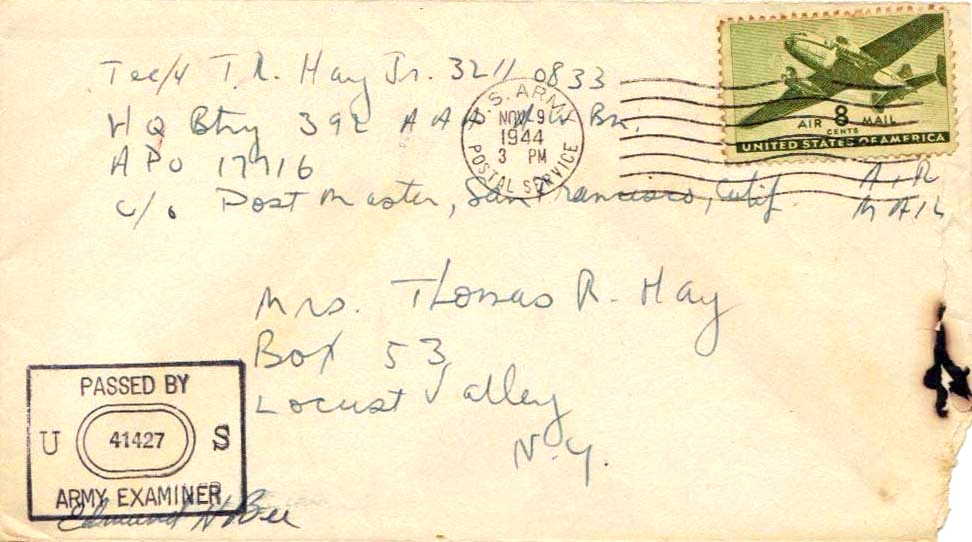 Tec/4 T. R. Hay Jr. 32110833
HQ Btry 392 AAA AW Bn,
APO 17716
c/o Post Master, San Francisco, Calif.
U.S. ARMY
NOV 9
1944
3 PM
POSTAL SERVICE
AIR 8 MAIL
CENTS
UNITED STATES OF AMERICA
Air
Mail
Mrs. Thomas R. Hay
Box 53
Locust Valley
N.Y.
PASSED BY
U 41427 S
ARMY EXAMINER
Edmund